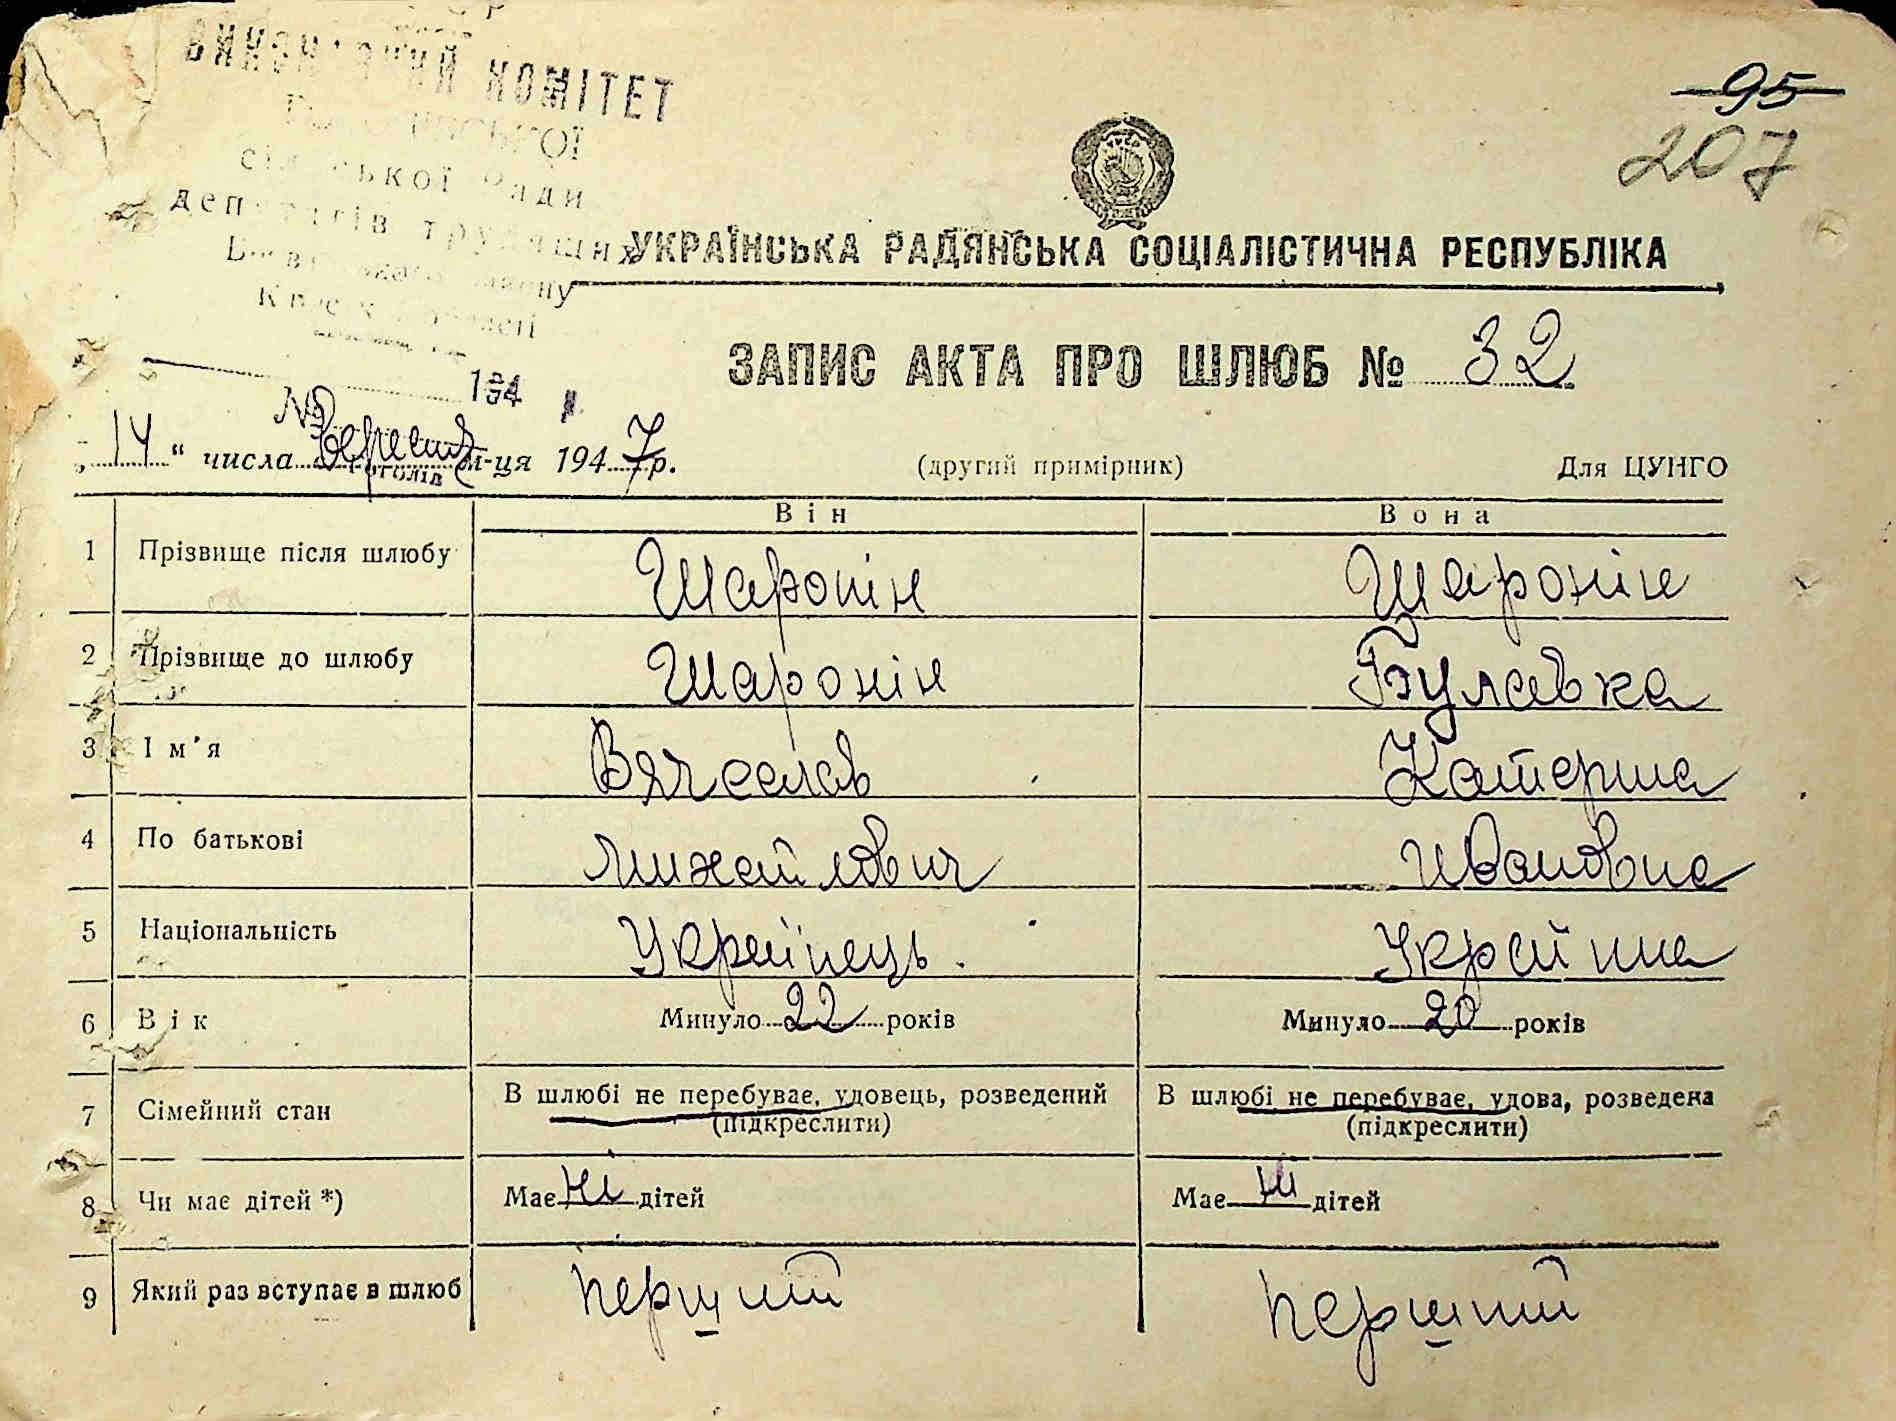 ВИКОНАВЧИЙ КОМІТЕТ
сільської Ради
депутатів трудящих
району
області
95
207
УКРАЇНСЬКА РАДЯНСЬКА СОЦІАЛІСТИЧНА РЕСПУБЛІКА
ЗАПИС АКТА ПРО ШЛЮБ № 32
194
№
„14“ числа Вересня м-ця 1947 р. (другий примірник) Для ЦУНГО
Гоголів
Він Вона
1 Прізвище після шлюбу Шаронін Шаронін
2 Прізвище до шлюбу Шаронін Булавка
3 Ім'я Вячеслав Катерина
4 По батькові Михайлович Ивановна
5 Національність Українець. Українка
6 Вік Минуло 22 років Минуло 20 років
7 Сімейний стан В шлюбі не перебуває, удовець, розведений В шлюбі не перебуває, удова, розведена
(підкреслити) (підкреслити)
8 Чи має дітей *) Має ні дітей Має ні дітей
9 Який раз вступає в шлюб перший перший